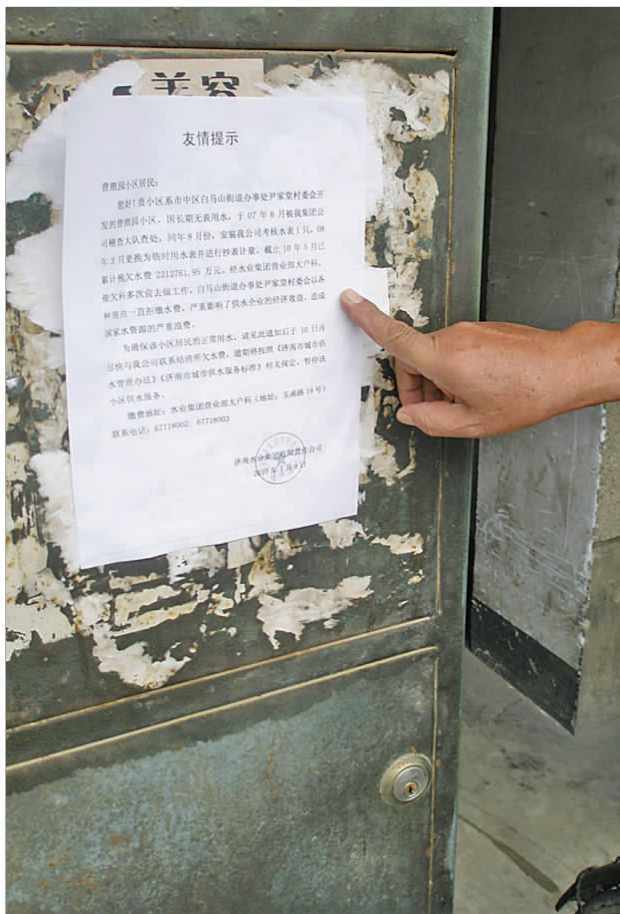 友情提示
普照园小区居民：
您好！贵小区系市中区白马山街道办事处尹家堂村委会开
发的普照园小区，因长期无表用水，于 07 年 6 月被我集团公
司稽查大队查处，同年 8 月份，安装我公司考核水表 1 只，08
年 3 月更换为临时用水表并进行抄表计量，截止 10 年 5 月已
累计拖欠水费 2212761.95 万元，经水业集团营业部大户科、
催欠科多次前去做工作，白马山街道办事处尹家堂村委会以各
种理由一直拒缴水费，严重影响了供水企业的经济效益，造成
国家水资源的严重浪费。
为确保该小区居民的正常用水，请见此通知后于 10 日内
尽快与我公司联系结清所欠水费，逾期将按照《济南市城市供
水管理办法》《济南市城市供水服务标准》相关规定，暂停该
小区供水服务。
缴费地址：水业集团营业部大户科（地址：玉函路 18 号）
联系电话：67718002 67718003
济南水业集团有限责任公司